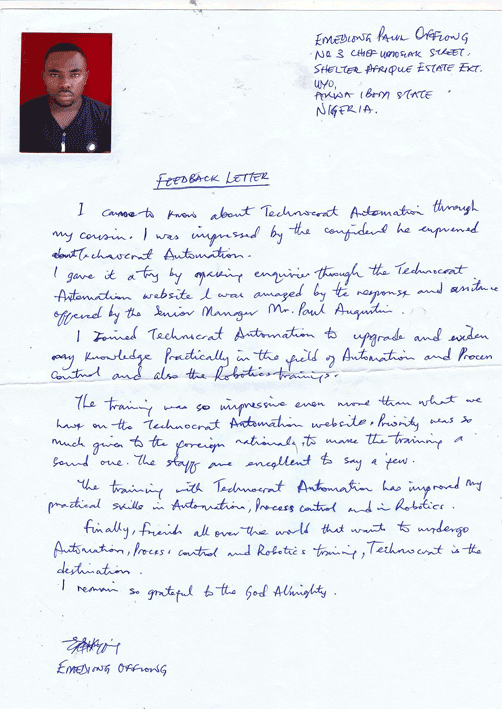 EMEDIONG PAUL OFFIONG
No 3 CHIEF UMOSAK STREET.
SHELTER AFRIQUE ESTATE EXT.
UYO,
AKWA IBOM STATE
NIGERIA.
FEEDBACK LETTER
I came to know about Technocrat Automation through
my cousin. I was impressed by the confident he expressed
about Technocrat Automation.
I gave it a try by making enquiries through the Technocrat
Automation website I was amazed by the response and assistance
offered by the Senior Manager Mr. Paul Augustin.
I Joined Technocrat Automation to upgrade and widen
my knowledge Practically in the field of Automation and Process
Control and also the Robotics trainings.
The training was so impressive even more than what we
have on the Technocrat Automation website. Priority was so
much given to the foreign nationals, to make the training a
sound one. The staff are excellent to say a few.
The training with Technocrat Automation has improved my
practical skills in Automation, Process control and in Robotics.
Finally, friends all over the world that wants to undergo
Automation, Process control and Robotics training, Technocrat is the
destination.
I remain so grateful to the God Almighty.
EMEDIONG OFFIONG